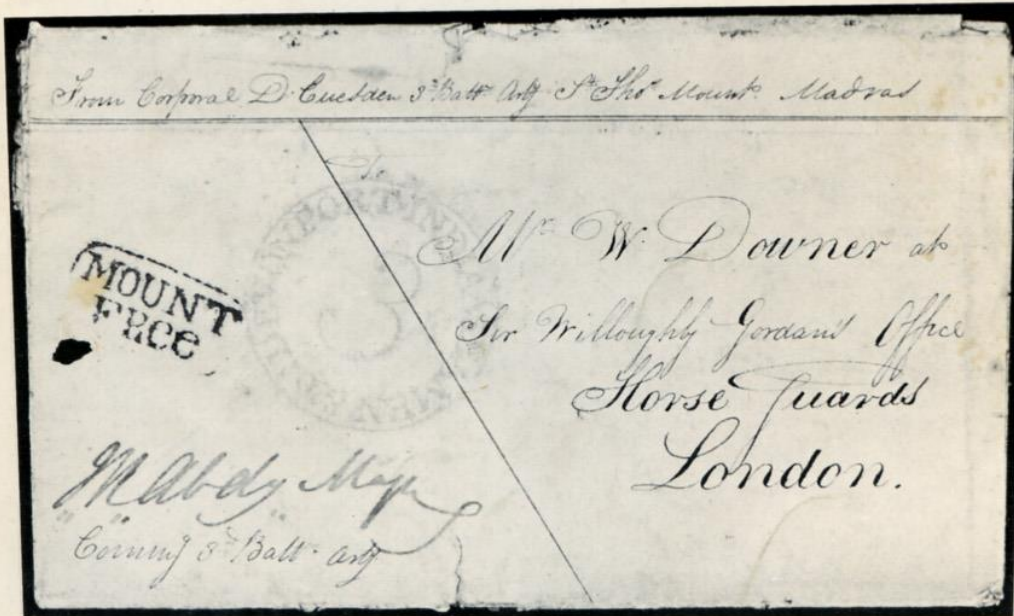 From Corporal D. Cuesden 3d Battn Arty St Thos Mount Madras
To
Mr W. Downer at
Sir Willoughby Gordans Office
Horse Guards
London.
MOUNT
FRee
Abdy Major
Commg 3d Batt. Arty